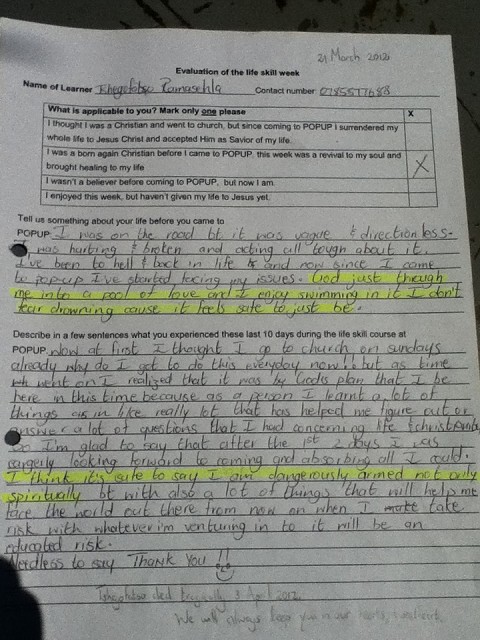 21 March 2012
Evaluation of the life skill week
Name of Learner Tshegofatso Ramasehla Contact number: 0785577688
What is applicable to you? Mark only one please X
I thought I was a Christian and went to church, but since coming to POPUP I surrendered my
whole life to Jesus Christ and accepted Him as Savior of my life
I was a born again Christian before I came to POPUP, this week was a revival to my soul and X
brought healing to my life
I wasn't a believer before coming to POPUP, but now I am
I enjoyed this week, but haven't given my life to Jesus yet.
Tell us something about your life before you came to
POPUP I was on the road bt it was vague & directionless.
I was hurting & broken and acting all tough about it.
I've been to hell & back in life & and now since I came
to popup I've started facing my issues. God just through
me into a pool of love and I enjoy swimming in it I don't
fear drowning cause it feels safe to just be.
Describe in a few sentences what you experienced these last 10 days during the life skill course at
POPUP. Now at first I thought I go to church on sundays
already why do I got to do this everyday now!. but as time
went on I realized that it was by Gods plan that I be
here in this time because as a person I learnt a lot of
things as in like really lot that has helped me figure out or
answer a lot of questions that I had concerning life & christianity
so I'm glad to say that after the 1st 2 days I was
eargerly looking forward to coming and absorbing all I could.
I think it's safe to say I am dangerously armed not only
spiritually bt with also a lot of things that will help me
face the world out there from now on when I make take
risk with whatever i'm venturing in to it will be an
educated risk.
Needless to say THANK YOU !!
Tshegofatso died tragically 3 April 2012.
We will always keep you in our